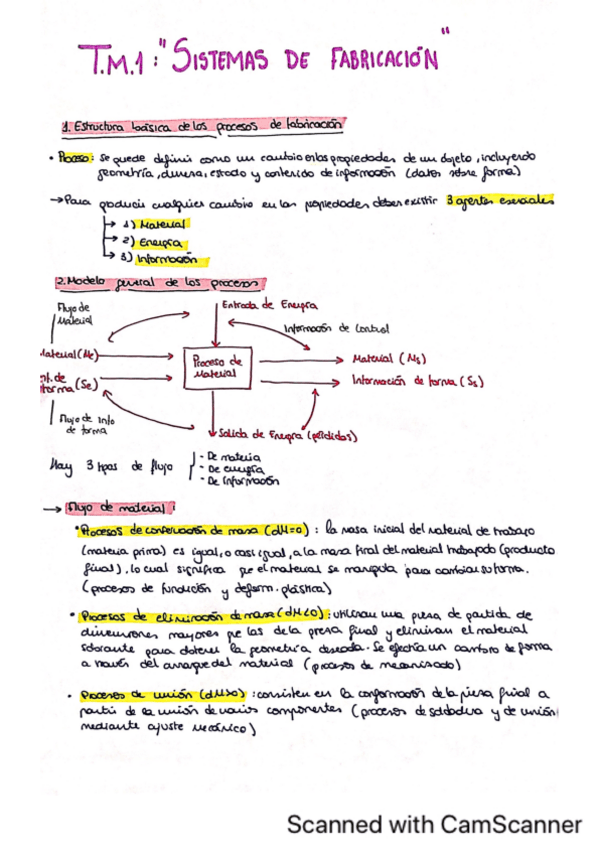 T.M.1: "SISTEMAS DE FABRICACIÓN"
1. Estructura básica de los procesos de fabricación
• Proceso: se puede definir como un cambio en las propiedades de un objeto, incluyendo
geometría, dureza, estado y contenido de información (datos sobre forma)
→ Para producir cualquier cambio en las propiedades deben existir 3 agentes esenciales
→ 1) Material
→ 2) Energía
→ 3) Información
2. Modelo general de los procesos
Flujo de
Material
Entrada de Energía
Información de Control
Material (Me)
Proceso de
Material
Material (Ms)
nf. de
forma (Se)
Información de forma (Ss)
Flujo de Info
de forma
Salida de Energía (pérdidas)
Hay 3 tipos de flujo
- De materia
- De energía
- De información
→ Flujo de material:
• Procesos de conservación de masa (dM=0): la masa inicial del material de trabajo
(materia prima) es igual, o casi igual, a la masa final del material trabajado (producto
final), lo cual significa que el material se manipula para cambiar su forma.
(procesos de fundición y deform. plástica)
• Procesos de eliminación de masa (dM<0): utilizan una pieza de partida de
dimensiones mayores que las de la pieza final y eliminan el material
sobrante para obtener la geometría deseada. Se efectúa un cambio de forma
a través del arranque del material (procesos de mecanizado)
• Procesos de unión (dM>0): consisten en la conformación de la pieza final a
partir de la unión de varios componentes (procesos de soldadura y de unión
mediante ajuste mecánico)
Scanned with CamScanner